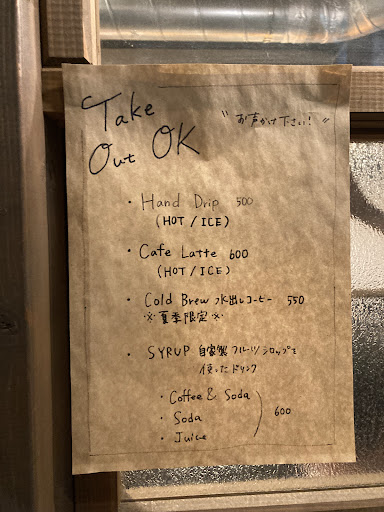 Take
Out OK
"お声かけ下さい!"
・Hand Drip 500
(HOT / ICE)
・Cafe Latte 600
(HOT / ICE)
・Cold Brew 水出しコーヒー 550
※夏季限定※
・SYRUP 自家製フルーツシロップを
使ったドリンク
・Coffee & Soda
・Soda
・Juice
600